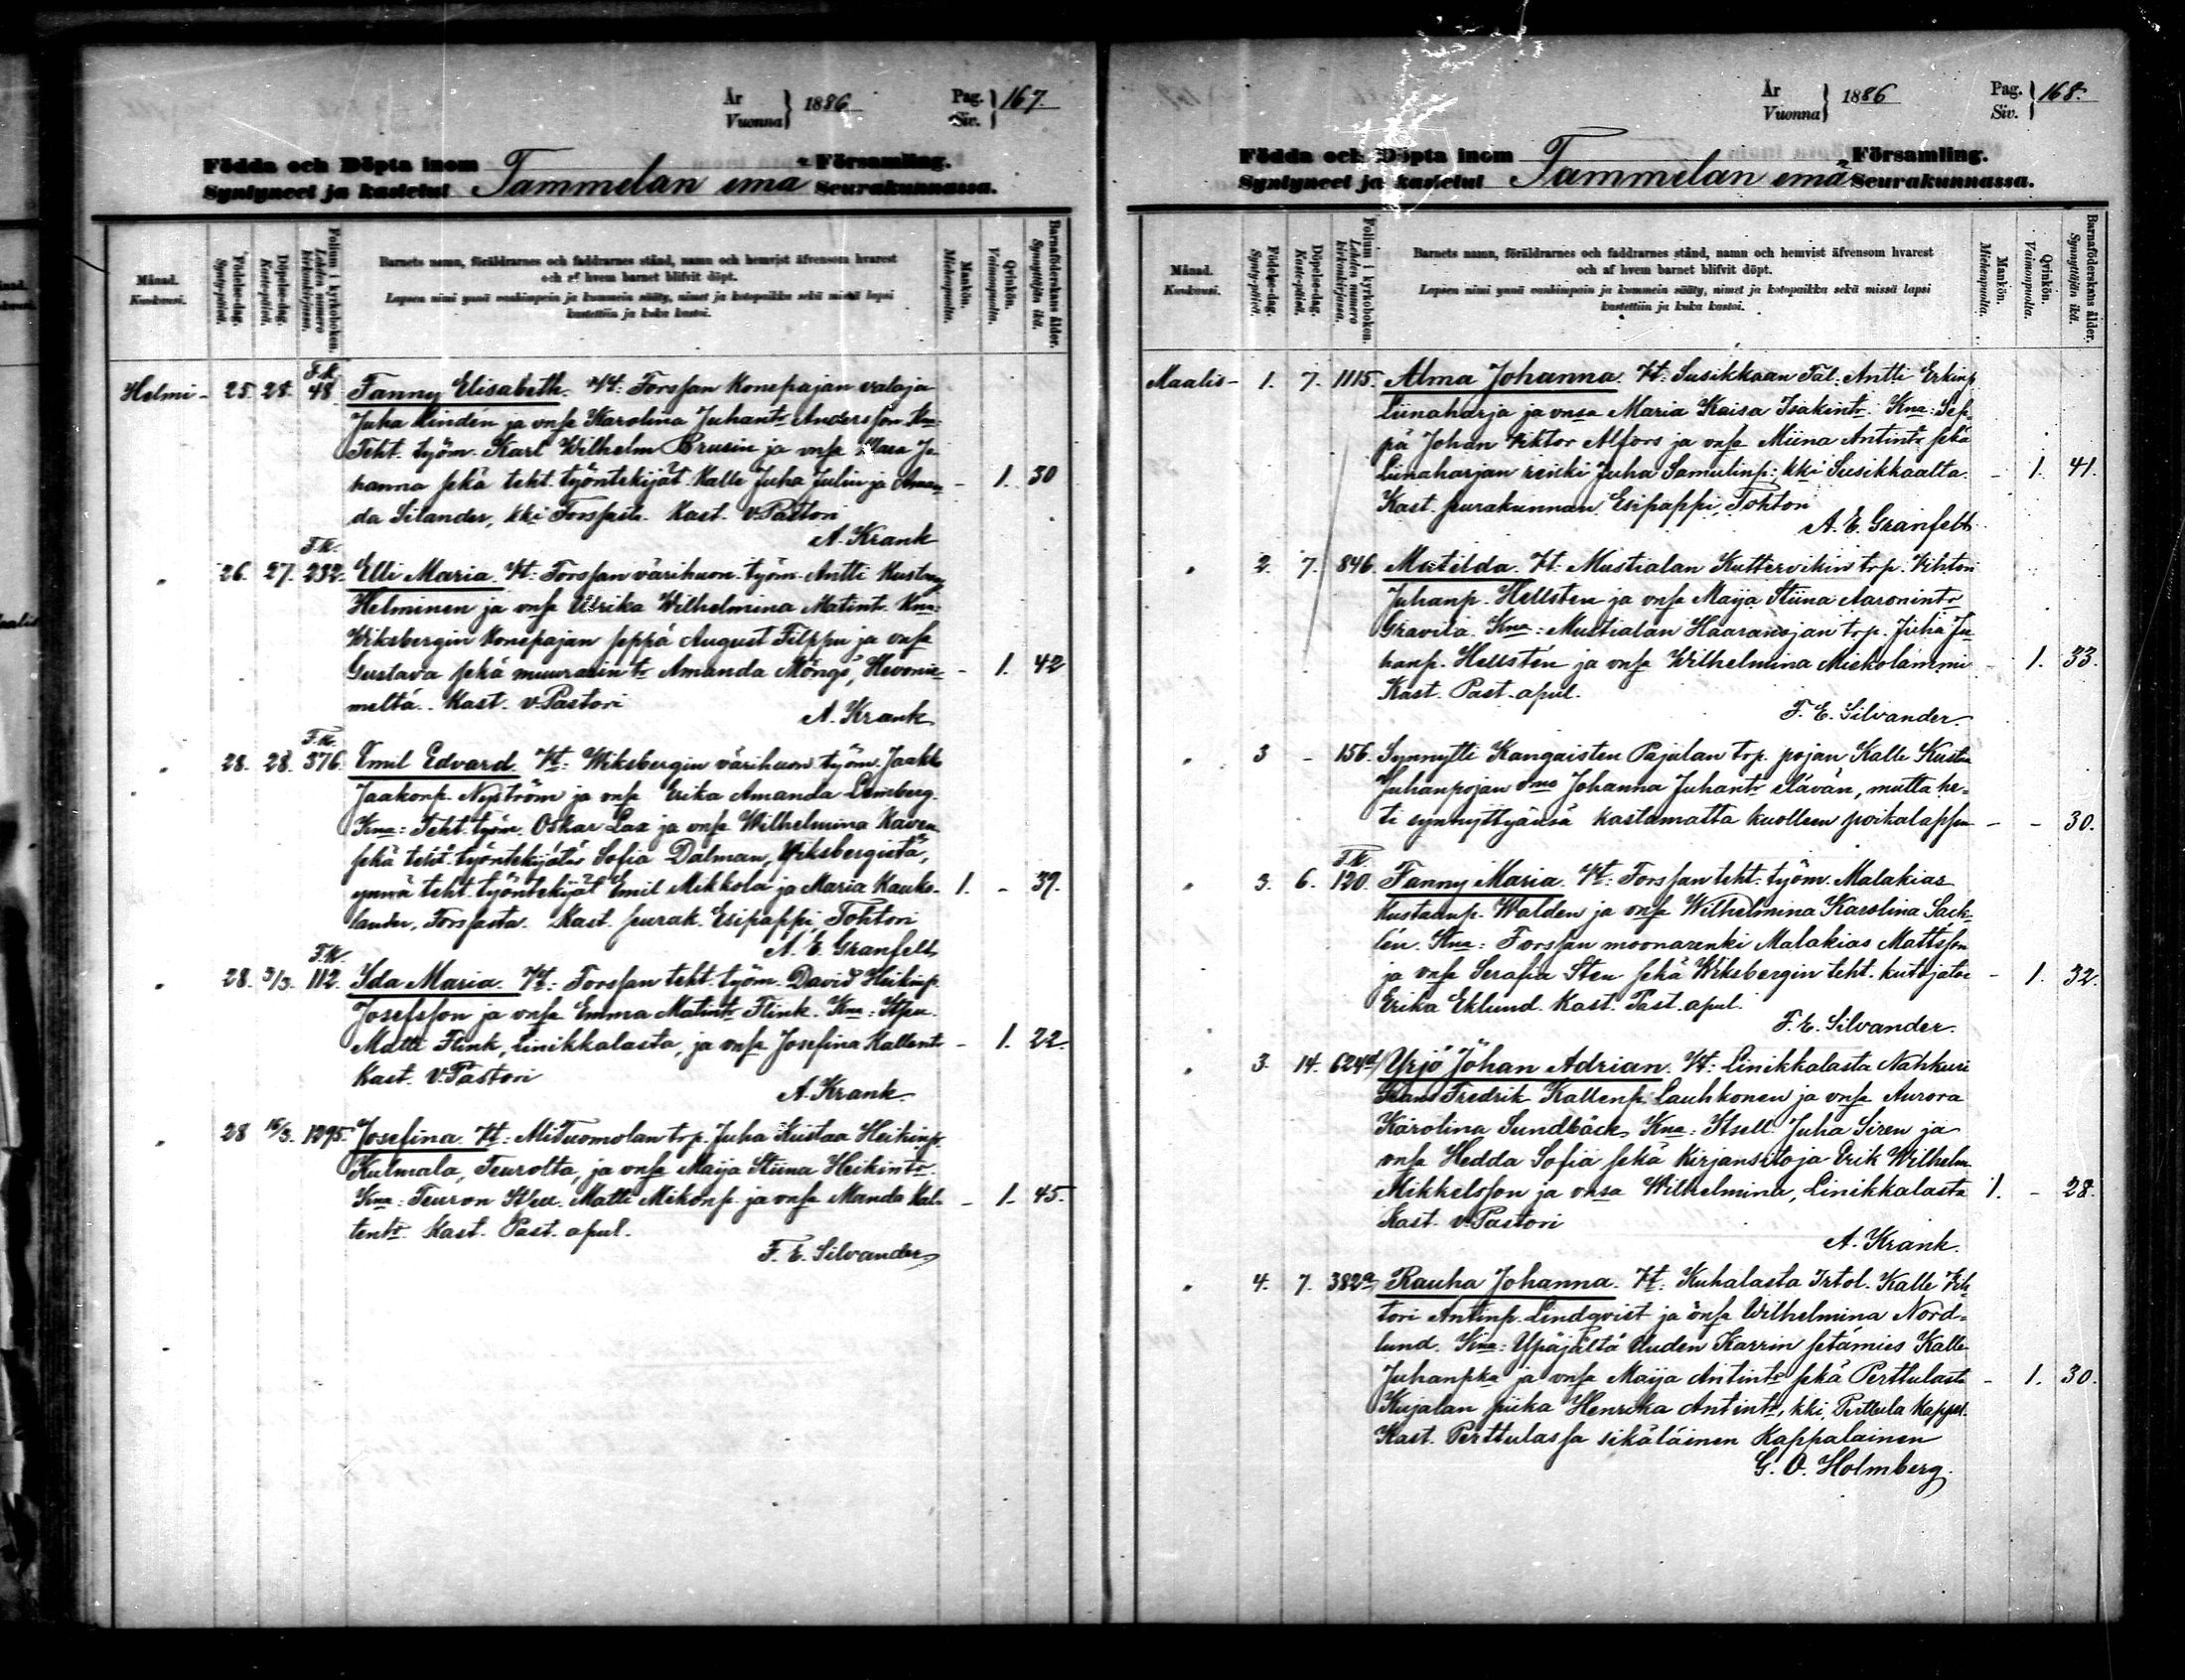 År
Vuonna } 1886
Pag.
Siv. } 167.
Födda och Döpta inom Tammelan emä Församling.
Syntyneet ja kastetut Seurakunnassa.
Månad. Kuukausi.
Födelse-dag. Synty-päivä.
Döpelse-dag. Kaste-päivä.
Folium i kyrkoboken. Lehden numero kirkonkirjassa.
Barnets namn, föräldrarnes och faddrarnes stånd, namn och hemvist äfvensom hvarest
och af hvem barnet blifvit döpt.
Lapsen nimi ynnä vanhimpain ja kummein sääty, nimet ja kotopaikka sekä missä lapsi
kastettiin ja kuka kastoi.
Mankön. Miehenpuolta.
Qvinkön. Vaimonpuolta.
Barnaföderskans ålder. Synnyttäjän ikä.
F.K.
Helmi - 25. 28. 48 Fanny Elisabeth. Vt: Forssan Konepajan valaja
Juha Lindén ja vnsa Karolina Juhantr Andersson Kna:
Teht. työm. Karl Wilhelm Brusin ja vnsa Maria Jo-
hanna sekä teht. työntekijät Kalle Juha Julin ja Aman- - 1. 30
da Silander, kki Forssasta. Kast. v.Pastori
A. Krank
F.K.
" 26. 27. 232. Elli Maria. Vt: Forssan värihuon. työm. Antti Kustaap.
Helminen ja vnsa Ulrika Wilhelmina Matintr. Kna:
Wiksbergin Konepajan seppä August Filppu ja vnsa
Gustava sekä muurarin tr Amanda Möngö, Hevonie- - 1. 42
meltä. Kast. v.Pastori
A. Krank
F.K.
" 28. 28. 376. Emil Edvard. Vt: Wiksbergin värihuon. työm. Jaakko
Jaakonp. Nyström ja vnsa Erika Amanda Lemberg.
Kna: Teht. työm. Oskar Lax ja vnsa Wilhelmina Kaven
sekä teht. työntekijätär Sofia Dalman, Wiksbergistä,
ynnä teht. työntekijät Emil Mikkola ja Maria Kauko- 1. - 39.
lander, Forssasta. Kast. seurak. Esipappi, Tohtori
A. E. Granfelt
F.K.
" 28. 3/3. 112. Ida Maria. Vt: Forssan teht. työm. David Heikinp.
Josefsson ja vnsa Emma Matintr Flink. Kna: Itsen.
Matti Flink, Linikkalasta, ja vnsa Josefina Kallentr - 1. 22.
Kast. v.Pastori
A. Krank
" 28 16/3. 1295. Josefina. Vt: AliTuomolan trp. Juha Kustaa Heikinp.
Kulmala, Teurolta, ja vnsa Maija Stiina Heikintr.
Kna: Teuron Itsen. Matti Mikonp. ja vnsa Manda Kal- - 1. 45.
lentr. Kast. Past. apul.
F. E. Silvander
År
Vuonna } 1886
Pag.
Siv. } 168.
Födda och Döpta inom Tammelan emä Församling.
Syntyneet ja kastetut Seurakunnassa.
Månad. Kuukausi.
Födelse-dag. Synty-päivä.
Döpelse-dag. Kaste-päivä.
Folium i kyrkoboken. Lehden numero kirkonkirjassa.
Barnets namn, föräldrarnes och faddrarnes stånd, namn och hemvist äfvensom hvarest
och af hvem barnet blifvit döpt.
Lapsen nimi ynnä vanhimpain ja kummein sääty, nimet ja kotopaikka sekä missä lapsi
kastettiin ja kuka kastoi.
Mankön. Miehenpuolta.
Qvinkön. Vaimonpuolta.
Barnaföderskans ålder. Synnyttäjän ikä.
Maalis- 1. 7. 1115. Alma Johanna. Vt: Susikkaan Tal. Antti Erkinp.
Liinaharja ja vnsa Maria Kaisa Isakintr. Kna: Sep-
pä Johan Viktor Alfors ja vnsa Miina Antintr sekä
Liinaharjan renki Juha Samulinp; kki Susikkaalta. - 1. 41.
Kast. seurakunnan Esipappi, Tohtori
A. E. Granfelt
" 2. 7. 846. Matilda. Vt: Mustialan Kuttervikin trp. Vihtori
Juhanp. Hellsten ja vnsa Maija Stiina Aaronintr
Gravila. Kna: Mustialan Haaranojan trp. Juha Ju-
hanp. Hellstén ja vnsa Wilhelmina Mickolämmi - 1. 33.
Kast. Past. apul.
F. E. Silvander.
" 3 - 156. Synnytti Kangaisten Pajulan trp. pojan Kalle Kustaa
Juhanpojan vmo Johanna Juhantr elävän, mutta he-
ti synnyttyänsä kastamatta kuolleen poikalapsen - - 30.
F.K.
" 3. 6. 120. Fanny Maria. Vt: Forssan teht. työm. Malakias
Kustaanp. Walden ja vnsa Wilhelmina Karolina Säck-
lén. Kna: Forssan moonarenki Malakias Mattsson
ja vnsa Serafia Sten sekä Wiksbergin teht. kutojatar - 1. 32.
Erika Eklund. Kast. Past. apul.
F. E. Silvander.
" 3. 14. 624d/ Yrjö Johan Adrian. Vt: Linikkalasta Nahkuri
Frans Fredrik Kallenp. Lauhkonen ja vnsa Aurora
Karolina Sundbäck Kna: Itsell. Juha Siren ja
vnsa Hedda Sofia sekä Kirjansitoja Erik Wilhelm
Mikkelsson ja vnsa Wilhelmina, Linikkalasta 1. - 28.
Kast. v.Pastori
A. Krank.
" 4. 7. 382a/ Rauha Johanna. Vt: Kuhalasta Irtol. Kalle Vih-
tori Antinp. Lindqvist ja vnsa Wilhelmina Nord-
lund. Kna: Ypäjältä Uuden Karrin setämies Kalle
Juhanpka ja vnsa Maija Antintr sekä Perttulasta - 1. 30.
Kujalan piika Henrika Antintr, kki, Perttula Kappel.
Kast. Perttulassa sikäläinen Kappalainen
G. O. Holmberg.